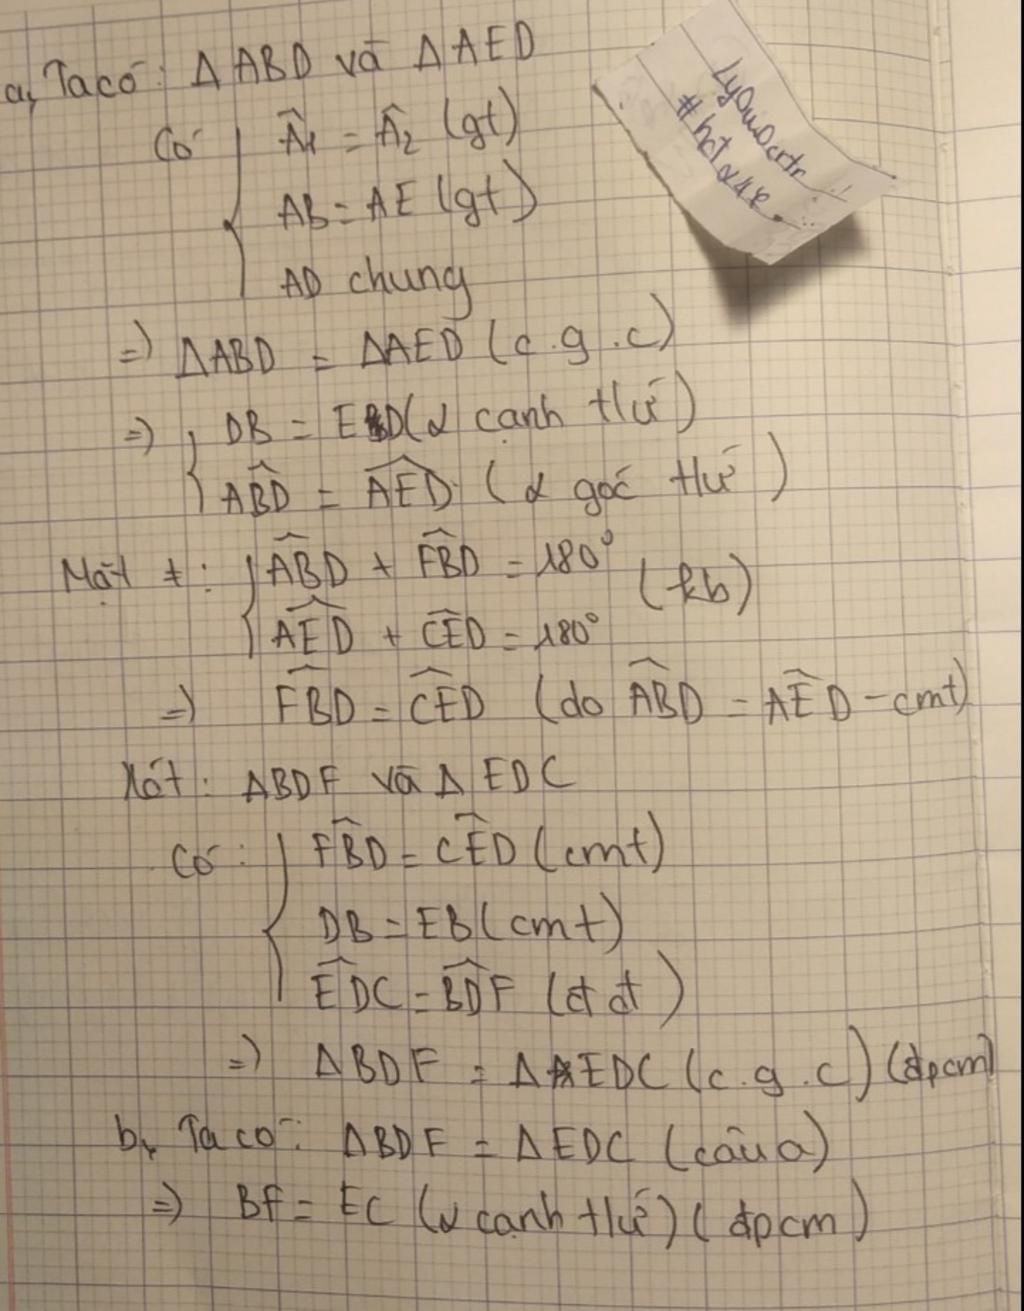 a, Ta có: Δ ABD và Δ AED
Có { Â1 = Â2 (gt)
AB = AE (gt)
AD chung
=> ΔABD = ΔAED (c.g.c)
=> { DB = ED (2 cạnh tứ)
ABD̂ = AED̂ (2 góc tứ)
Mặt ≠: { ABD̂ + FBD̂ = 180° (kb)
AED̂ + CED̂ = 180°
=> FBD̂ = CED̂ (do ABD̂ = AED̂ - cmt)
Xét: ΔBDF và Δ EDC
Có: { FBD̂ = CED̂ (cmt)
DB = EB (cmt)
EDĈ = BDF̂ (đ đ)
=> ΔBDF = ΔEDC (c.g.c) (đpcm)
b, Ta có: ΔBDF = ΔEDC (câu a)
=> BF = EC (2 cạnh tứ) (đpcm)